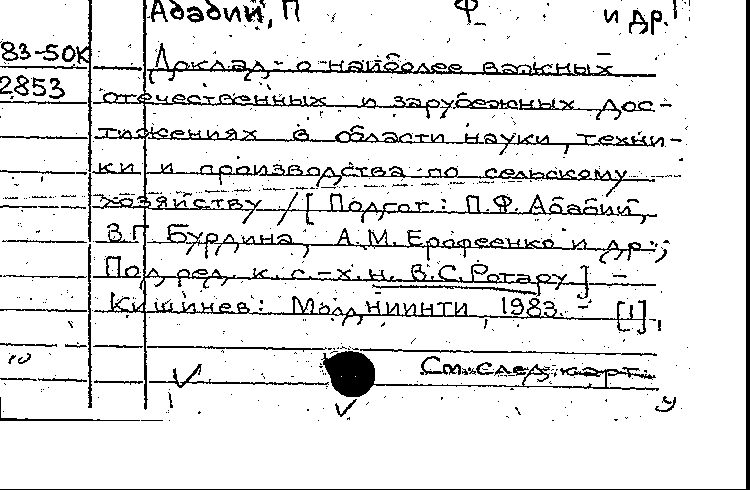 Абабий, П Ф и др.
83-50К
2853
Доклад о наиболее важных
отечественных и зарубежных дос-
тижениях в области науки, техни-
ки и производства по сельскому
хозяйству / [ Подгот.: П.Ф. Абабий,
В.Г. Бурдина, А.М. Ерофеенко и др.;
Под ред. к. с.-х.н. В.С. Ротару ] -
Кишинев: МолдНИИНТИ, 1983. - [1],
См. след. карт.
у